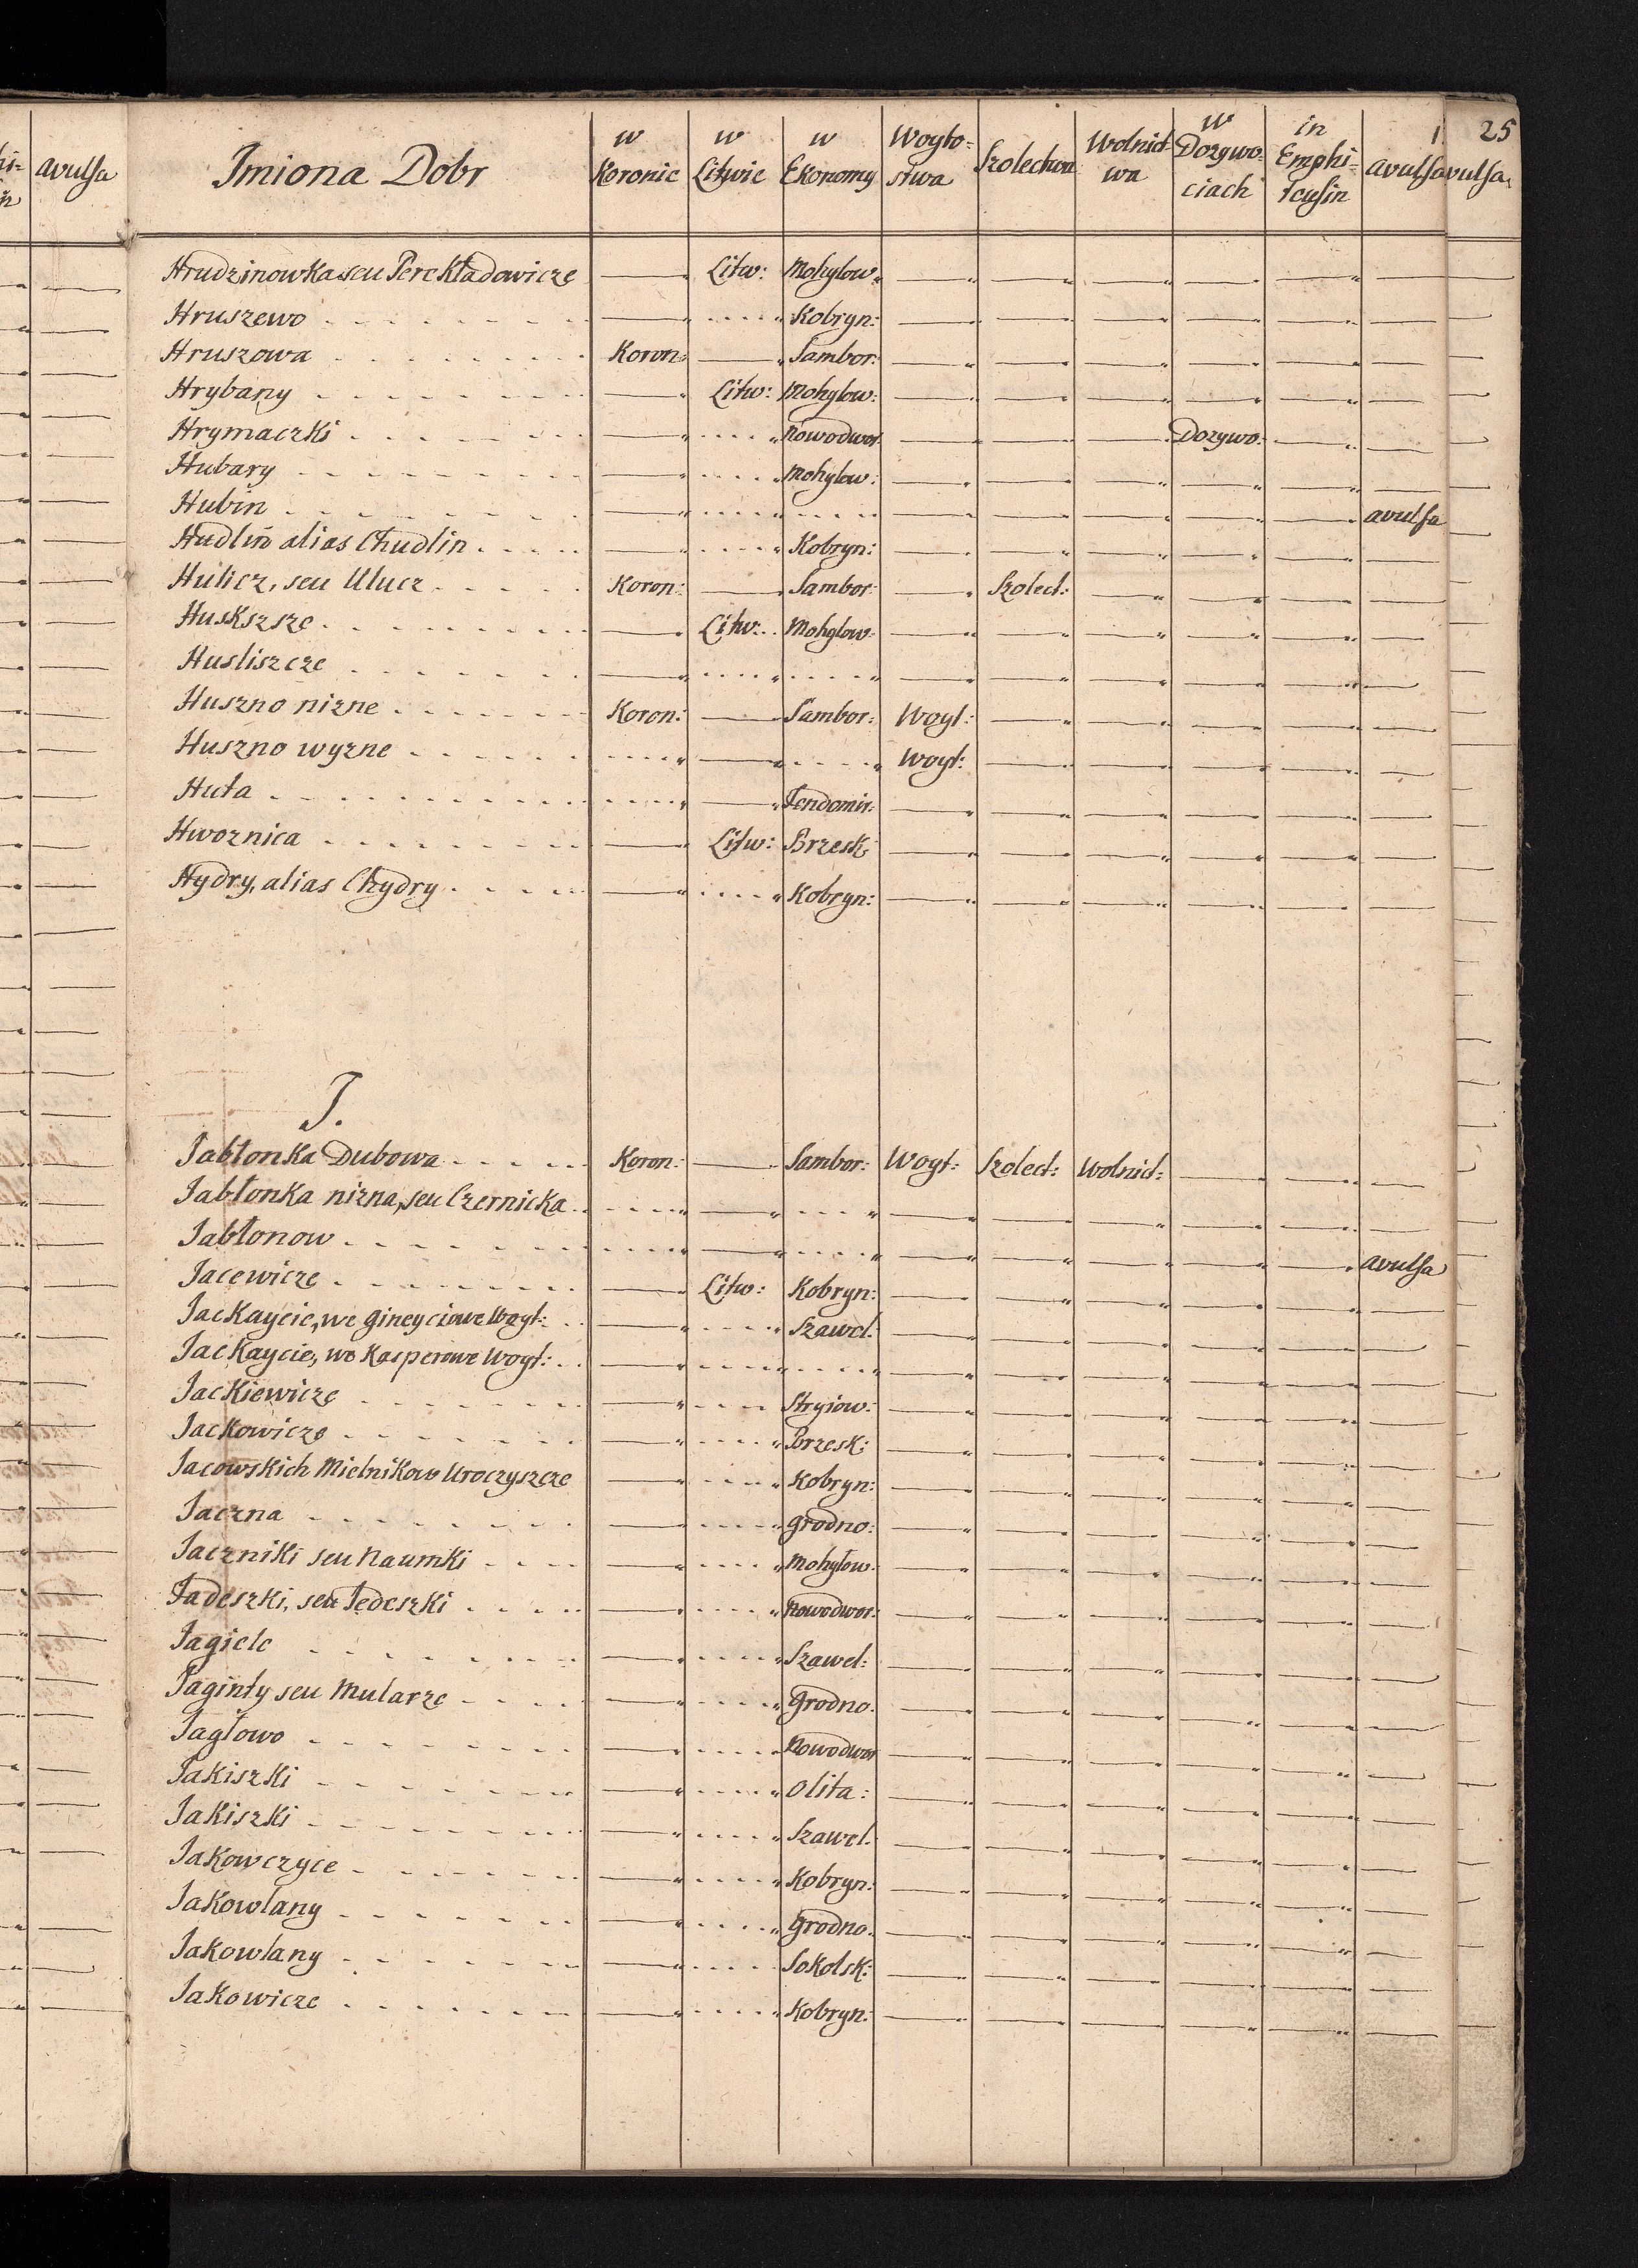 Imiona Dobr | w Koronie | w Litwie | w Ekonomy | Woyto=stwa | Szolectwa | Wolnict wa | w Dozywo=ciach | in Emphi=teusin | avulsa
avulsa
25
vulsa
Hrudzinowka seu Perekładowicze Litw: Mohylow:
Hruszewo Kobryn:
Hruszowa Koron: Sambor:
Hrybany Litw: Mohylow:
Hrymaczki Nowodwor: Dozywo:
Hubary Mohylow:
Hubin avulsa
Hudlin alias Chudlin Kobryn:
Hulicz, seu Ulucz Koron: Sambor: Szolect:
Huskszsze Litw: Mohylow:
Husliszcze
Huszno nizne Koron: Sambor: Woyt:
Huszno wyzne Woyt:
Huta Sendomir:
Hwoznica Litw: Brzesk:
Hydry, alias Chydry Kobryn:
J.
Jabłonka Dubowa Koron: Sambor: Woyt: Szolect: Wolnict:
Jabłonka nizna, seu Czernicka
Jabłonow avulsa
Jacewicze Litw: Kobryn:
Jackaycie, we Gineyciowe Woyt: Szawel:
Jackaycie, wo Kasperowe Woyt:
Jackiewicze Stryiow:
Jackowicze Brzesk:
Jacowskich Mielnikow Uroczyszcze Kobryn:
Jaczna Grodno:
Jaczniki seu Naumki Mohylow:
Jadeszki, seu Jedeszki Nowodwor:
Jagiele Szawel:
Jaginty seu Mularze Grodno:
Jagłowo Nowodwor
Jakiszki Olita:
Jakiszki Szawel:
Jakowczyce Kobryn:
Jakowlany Grodno:
Jakowlany Sokolsk:
Jakowicze Kobryn: